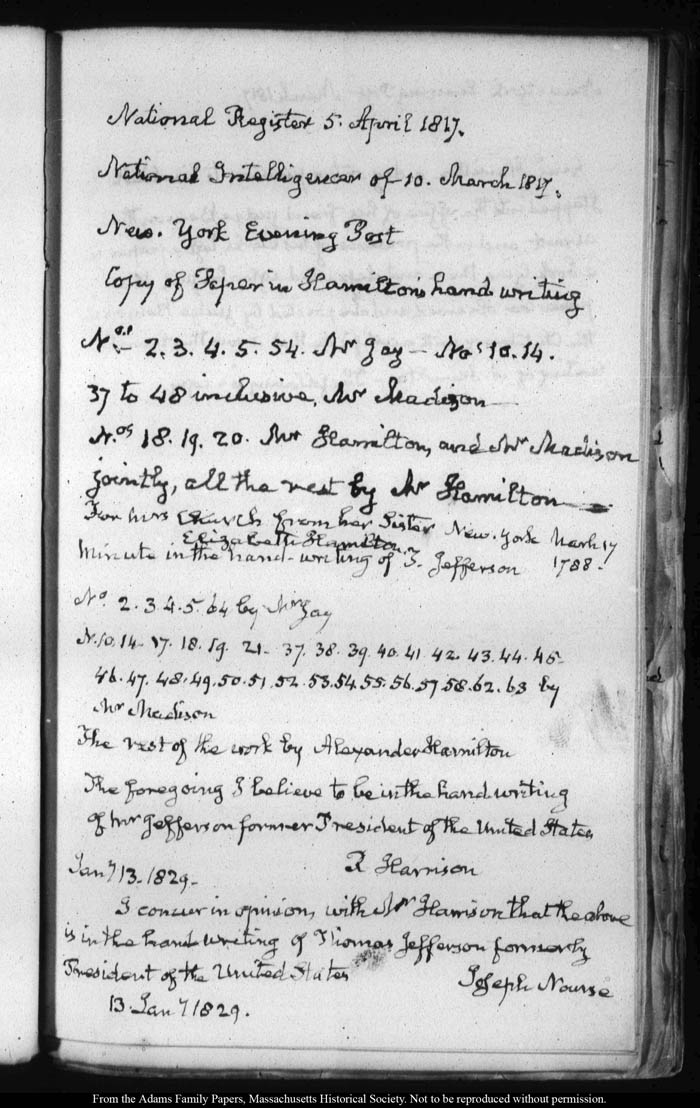 National Register 5. April 1817.
National Intelligencer of 10. March 1817.
New. York Evening Post
Copy of Paper in Hamiltons hand writing
N.os 2. 3. 4. 5. 54. Mr Jay — Nos 10. 14.
37 to 48 inclusive, Mr Madison —
N.os 18. 19. 20. Mr Hamilton, and Mr Madison
jointly, all the rest by Mr Hamilton —
For Mrs Church from her Sister New. York March 17
Elizabeth Hamilton 1788.
Minute in the hand-writing of T. Jefferson
No. 2. 3. 4. 5. 64 by Mr Jay
N. 10. 14. 17. 18. 19. 21. 37. 38. 39. 40. 41. 42. 43. 44. 45.
46. 47. 48. 49. 50. 51. 52. 53. 54. 55. 56. 57. 58. 62. 63 by
Mr Madison
The rest of the work by Alexander Hamilton
The foregoing I believe to be in the hand writing
of Mr Jefferson former President of the United States
R Harrison
Jany 13. 1829.
I concur in opinion, with Mr Harrison that the above
is in the hand writing of Thomas Jefferson formerly
President of the United States
Joseph Nourse
13. Jany 1829.
From the Adams Family Papers, Massachusetts Historical Society. Not to be reproduced without permission.